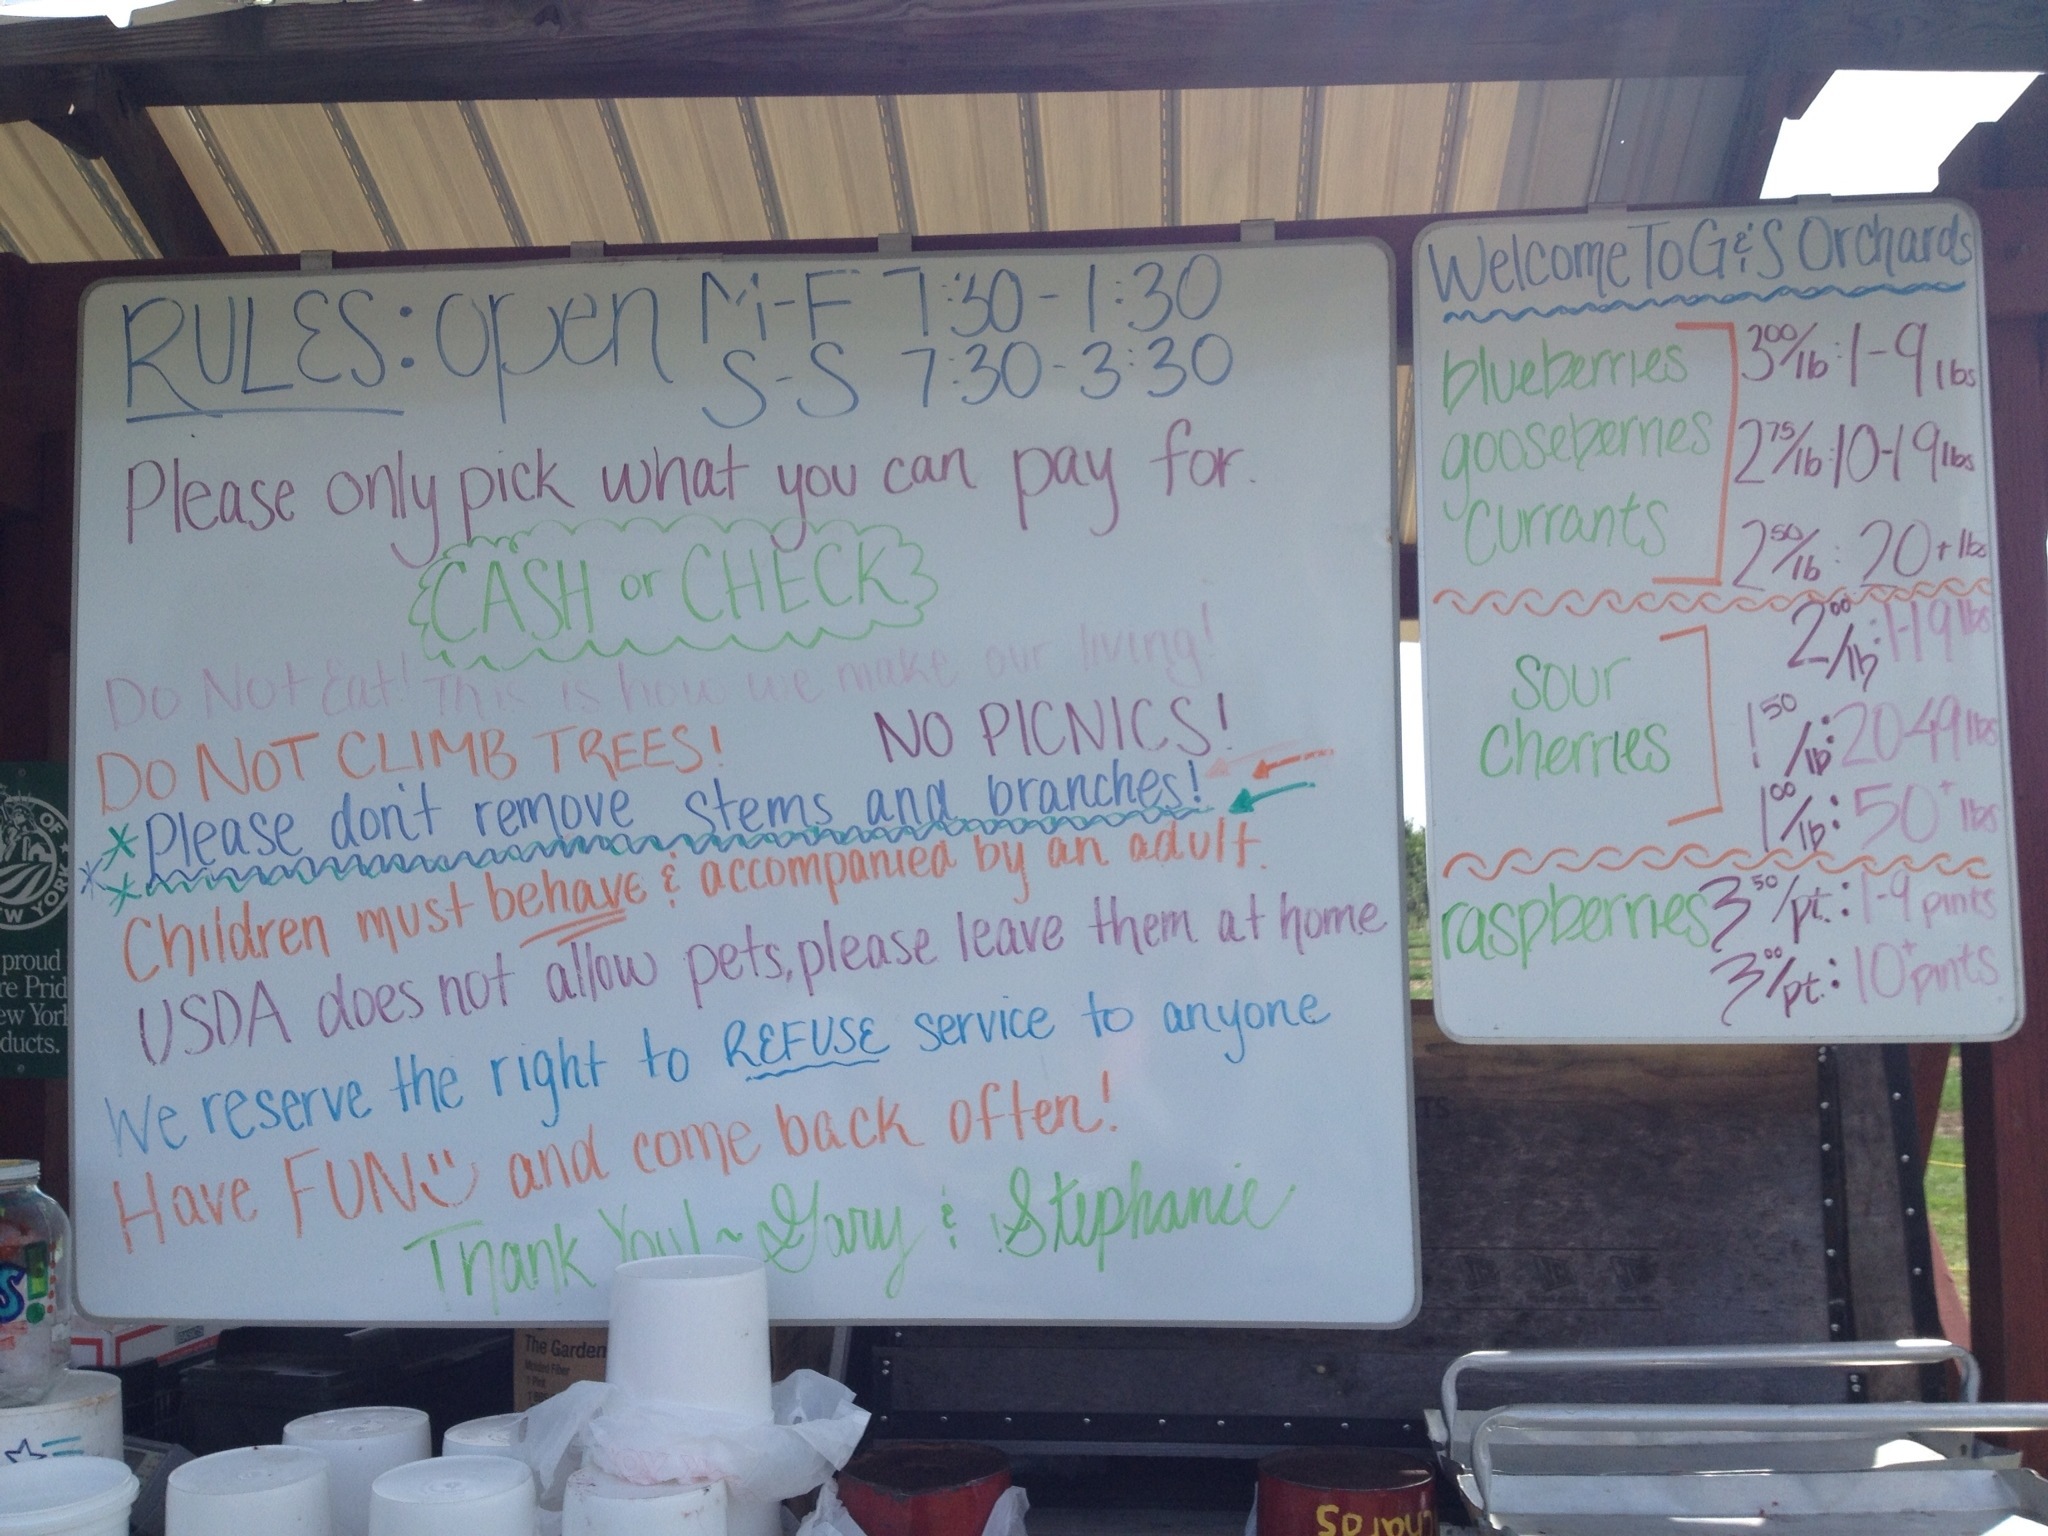 RULES: open M-F 7:30-1:30
S-S 7:30-3:30
Please only pick what you can pay for.
CASH or CHECK
Do Not Eat! This is how we make our living!
DO NOT CLIMB TREES! NO PICNICS!
*Please don't remove stems and branches!
Children must behave & accompanied by an adult.
USDA does not allow pets, please leave them at home
We reserve the right to REFUSE service to anyone
Have FUN and come back often!
Thank You! ~ Gary & Stephanie
Welcome To G&S Orchards
blueberries
gooseberries
currants
3.00/lb: 1-9 lbs
2.75/lb: 10-19 lbs
2.50/lb: 20+ lbs
sour
cherries
2.00/lb: 1-19 lbs
1.50/lb: 20-49 lbs
1.00/lb: 50+ lbs
raspberries 3.50/pt.: 1-9 pints
3.00/pt.: 10+ pints
OF
proud
Prid
York
ducts.
The Garden
Molded Fiber
1 Pint